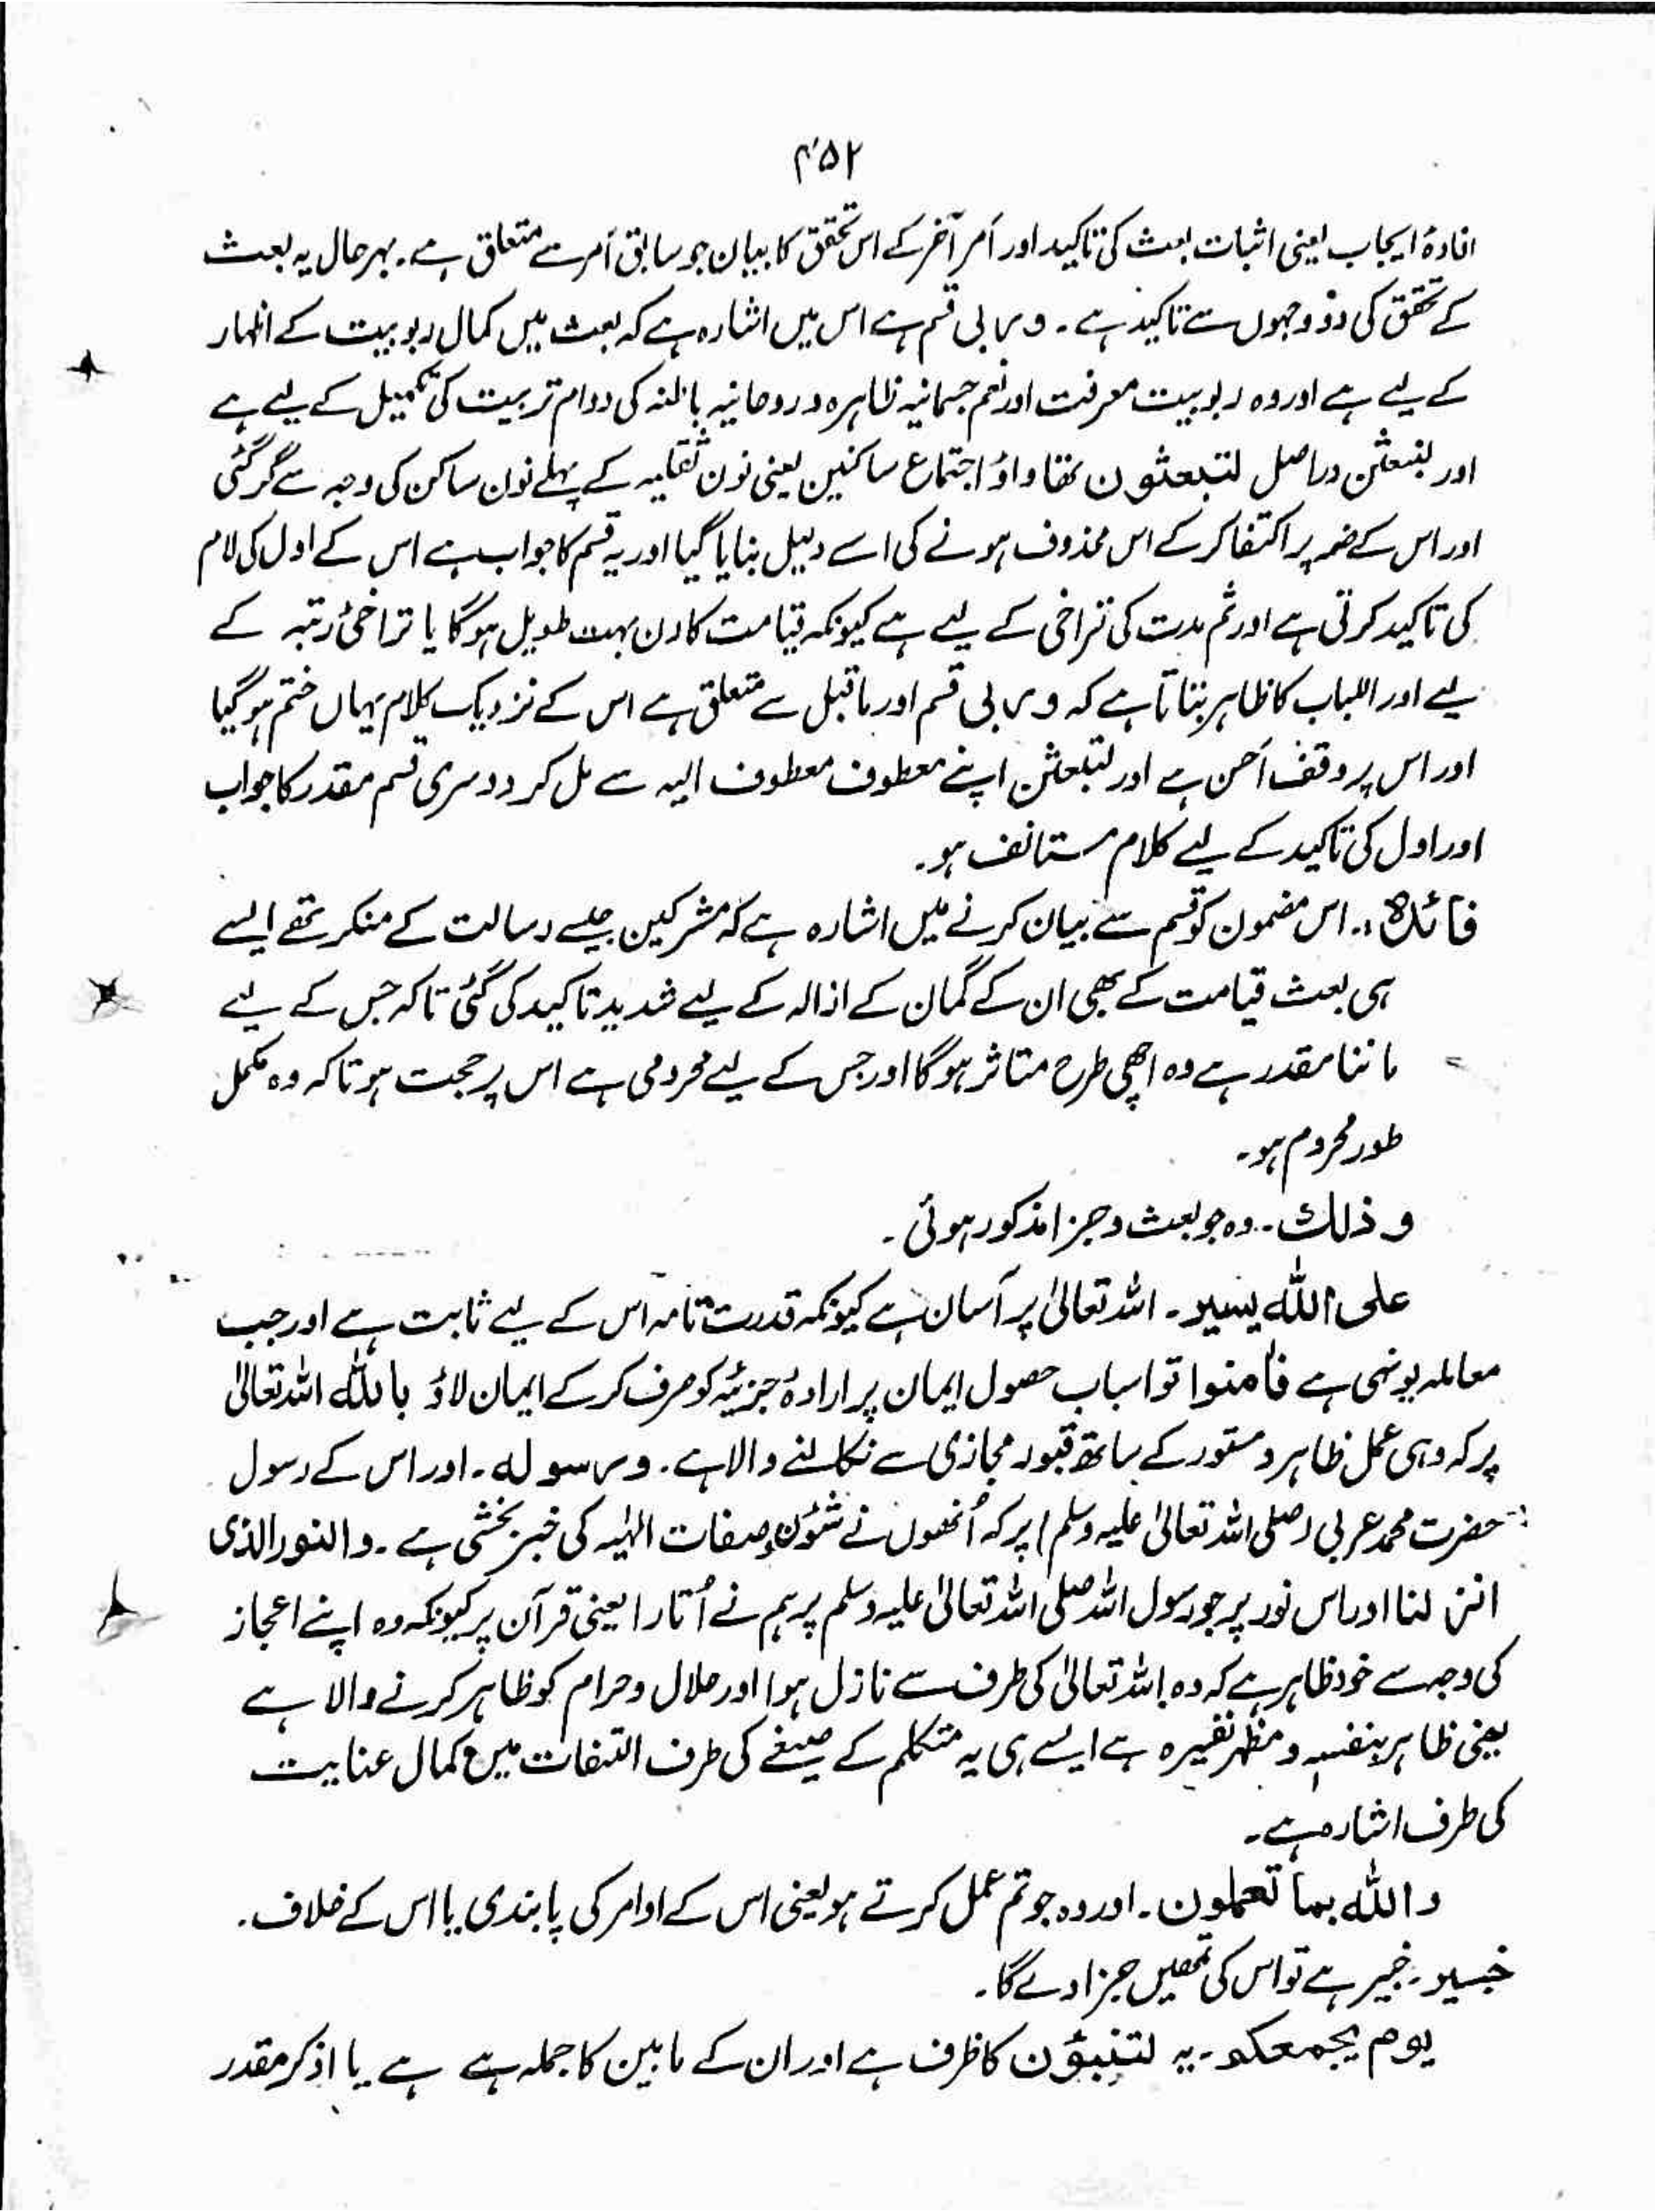 ۴۵۲
افادۂ ایجاب یعنی اثبات بعث کی تاکید اور اَمر آخر کے اس تحقق کا بیان جو سابق اَمر سے متعلق ہے۔ بہرحال یہ بعث
کے تحقق کی دو وجہوں سے تاکید ہے۔ وربی قسم ہے اس میں اشارہ ہے کہ بعث میں کمال ربوبیت کے اظہار
کے لیے ہے اور وہ ربوبیت معرفت اور نعم جسمانیہ ظاہرہ و روحانیہ باطنہ کی دوام تربیت کی تکمیل کے لیے ہے
اور لتبعثن دراصل لتبعثون تھا واؤ اجتماع ساکنین یعنی نون ثقلیہ کے پہلے نون ساکن کی وجہ سے گر گئی
اور اس کے ضمہ پر اکتفا کر کے اس محذوف ہونے کی اسے دلیل بنایا گیا اور یہ قسم کا جواب ہے اس کے اول کی لام
کی تاکید کرتی ہے اور ثم مدت کی تراخی کے لیے ہے کیونکہ قیامت کا دن بہت طویل ہوگا یا تراخیٔ رتبہ کے
لیے اور اللباب کا ظاہر بتاتا ہے کہ وربی قسم اور ماقبل سے متعلق ہے اس کے نزدیک کلام یہاں ختم ہو گیا
اور اس پر وقف اَحسن ہے اور لتبعثن اپنے معطوف معطوف الیہ سے مل کر دوسری قسم مقدر کا جواب
اور اول کی تاکید کے لیے کلام مستانف ہو۔
فائدہ :۔ اس مضمون کو قسم سے بیان کرنے میں اشارہ ہے کہ مشرکین جیسے رسالت کے منکر تھے ایسے
ہی بعث قیامت کے بھی ان کے گمان کے ازالہ کے لیے شدید تاکید کی گئی تاکہ جس کے لیے
ماننا مقدر ہے وہ اچھی طرح متاثر ہوگا اور جس کے لیے محرومی ہے اس پر حجت ہو تاکہ وہ مکمل
طور محروم ہو۔
وذلك ۔ وہ جو بعث و جزا مذکور ہوئی۔
علی اللّٰه یسیر ۔ اللہ تعالیٰ پر آسان ہے کیونکہ قدرت تامہ اس کے لیے ثابت ہے اور جب
معاملہ یونہی ہے فاٰمنوا تو اسباب حصول ایمان پر ارادۂ جزئیہ کو صرف کر کے ایمان لاؤ باللّٰه اللہ تعالیٰ
پر کہ وہی عمل ظاہر و مستور کے ساتھ قبور مجازی سے نکالنے والا ہے۔ ورسوله ۔ اور اس کے رسول
حضرت محمد عربی (صلی اللہ تعالیٰ علیہ وسلم) پر کہ اُنھوں نے شئون و صفات الٰہیہ کی خبر بخشی ہے۔ والنور الذی
انزلنا اور اس نور پر جو رسول اللہ صلی اللہ تعالیٰ علیہ وسلم پر ہم نے اُتارا یعنی قرآن پر کیونکہ وہ اپنے اعجاز
کی وجہ سے خود ظاہر ہے کہ وہ اللہ تعالیٰ کی طرف سے نازل ہوا اور حلال و حرام کو ظاہر کرنے والا ہے
یعنی ظاہر بنفسہٖ و مظہر لغیرہ ہے ایسے ہی یہ متکلم کے صیغے کی طرف التفات میں کمال عنایت
کی طرف اشارہ ہے۔
واللّٰه بما تعملون ۔ اور وہ جو تم عمل کرتے ہو یعنی اس کے اوامر کی پابندی یا اس کے خلاف۔
خبیر ۔ خبیر ہے تو اس کی تمھیں جزا دے گا۔
یوم یجمعکم ۔ یہ لتنبؤن کا ظرف ہے اور ان کے مابین کا جملہ ہے ہے یا اذکر مقدر